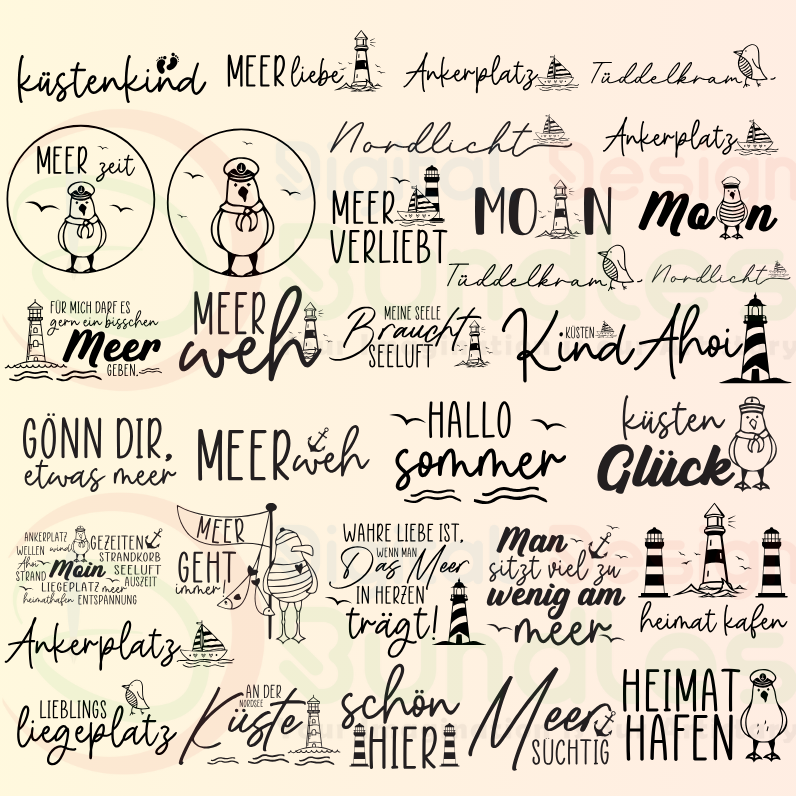 küstenkind
MEER liebe
Ankerplatz
Tüddelkram
MEER zeit
Nordlicht
Ankerplatz
MEER
VERLIEBT
MOIN
Moin
Tüddelkram
Nordlicht
FÜR MICH DARF ES
gern ein bisschen
Meer
GEBEN.
MEER
weh
MEINE SEELE
Braucht
SEELUFT
KÜSTEN
Kind
Ahoi
GÖNN DIR,
etwas meer
MEER weh
HALLO
sommer
küsten
Glück
ANKERPLATZ
WELLEN wind GEZEITEN
Ahoi STRANDKORB
STRAND Moin SEELUFT
AUSZEIT
LIEGEPLATZ meer
heimathafen ENTSPANNUNG
MEER
GEHT
immer!
WAHRE LIEBE IST,
WENN MAN
Das Meer
IN HERZEN
trägt!
Man
sitzt viel zu
wenig am
meer
heimat hafen
Ankerplatz
LIEBLINGS
liegeplatz
AN DER
NORDSEE
Küste
schön
HIER
Meer
SÜCHTIG
HEIMAT
HAFEN
Digital Design
Bundles
Your Imagination is Our Inventory